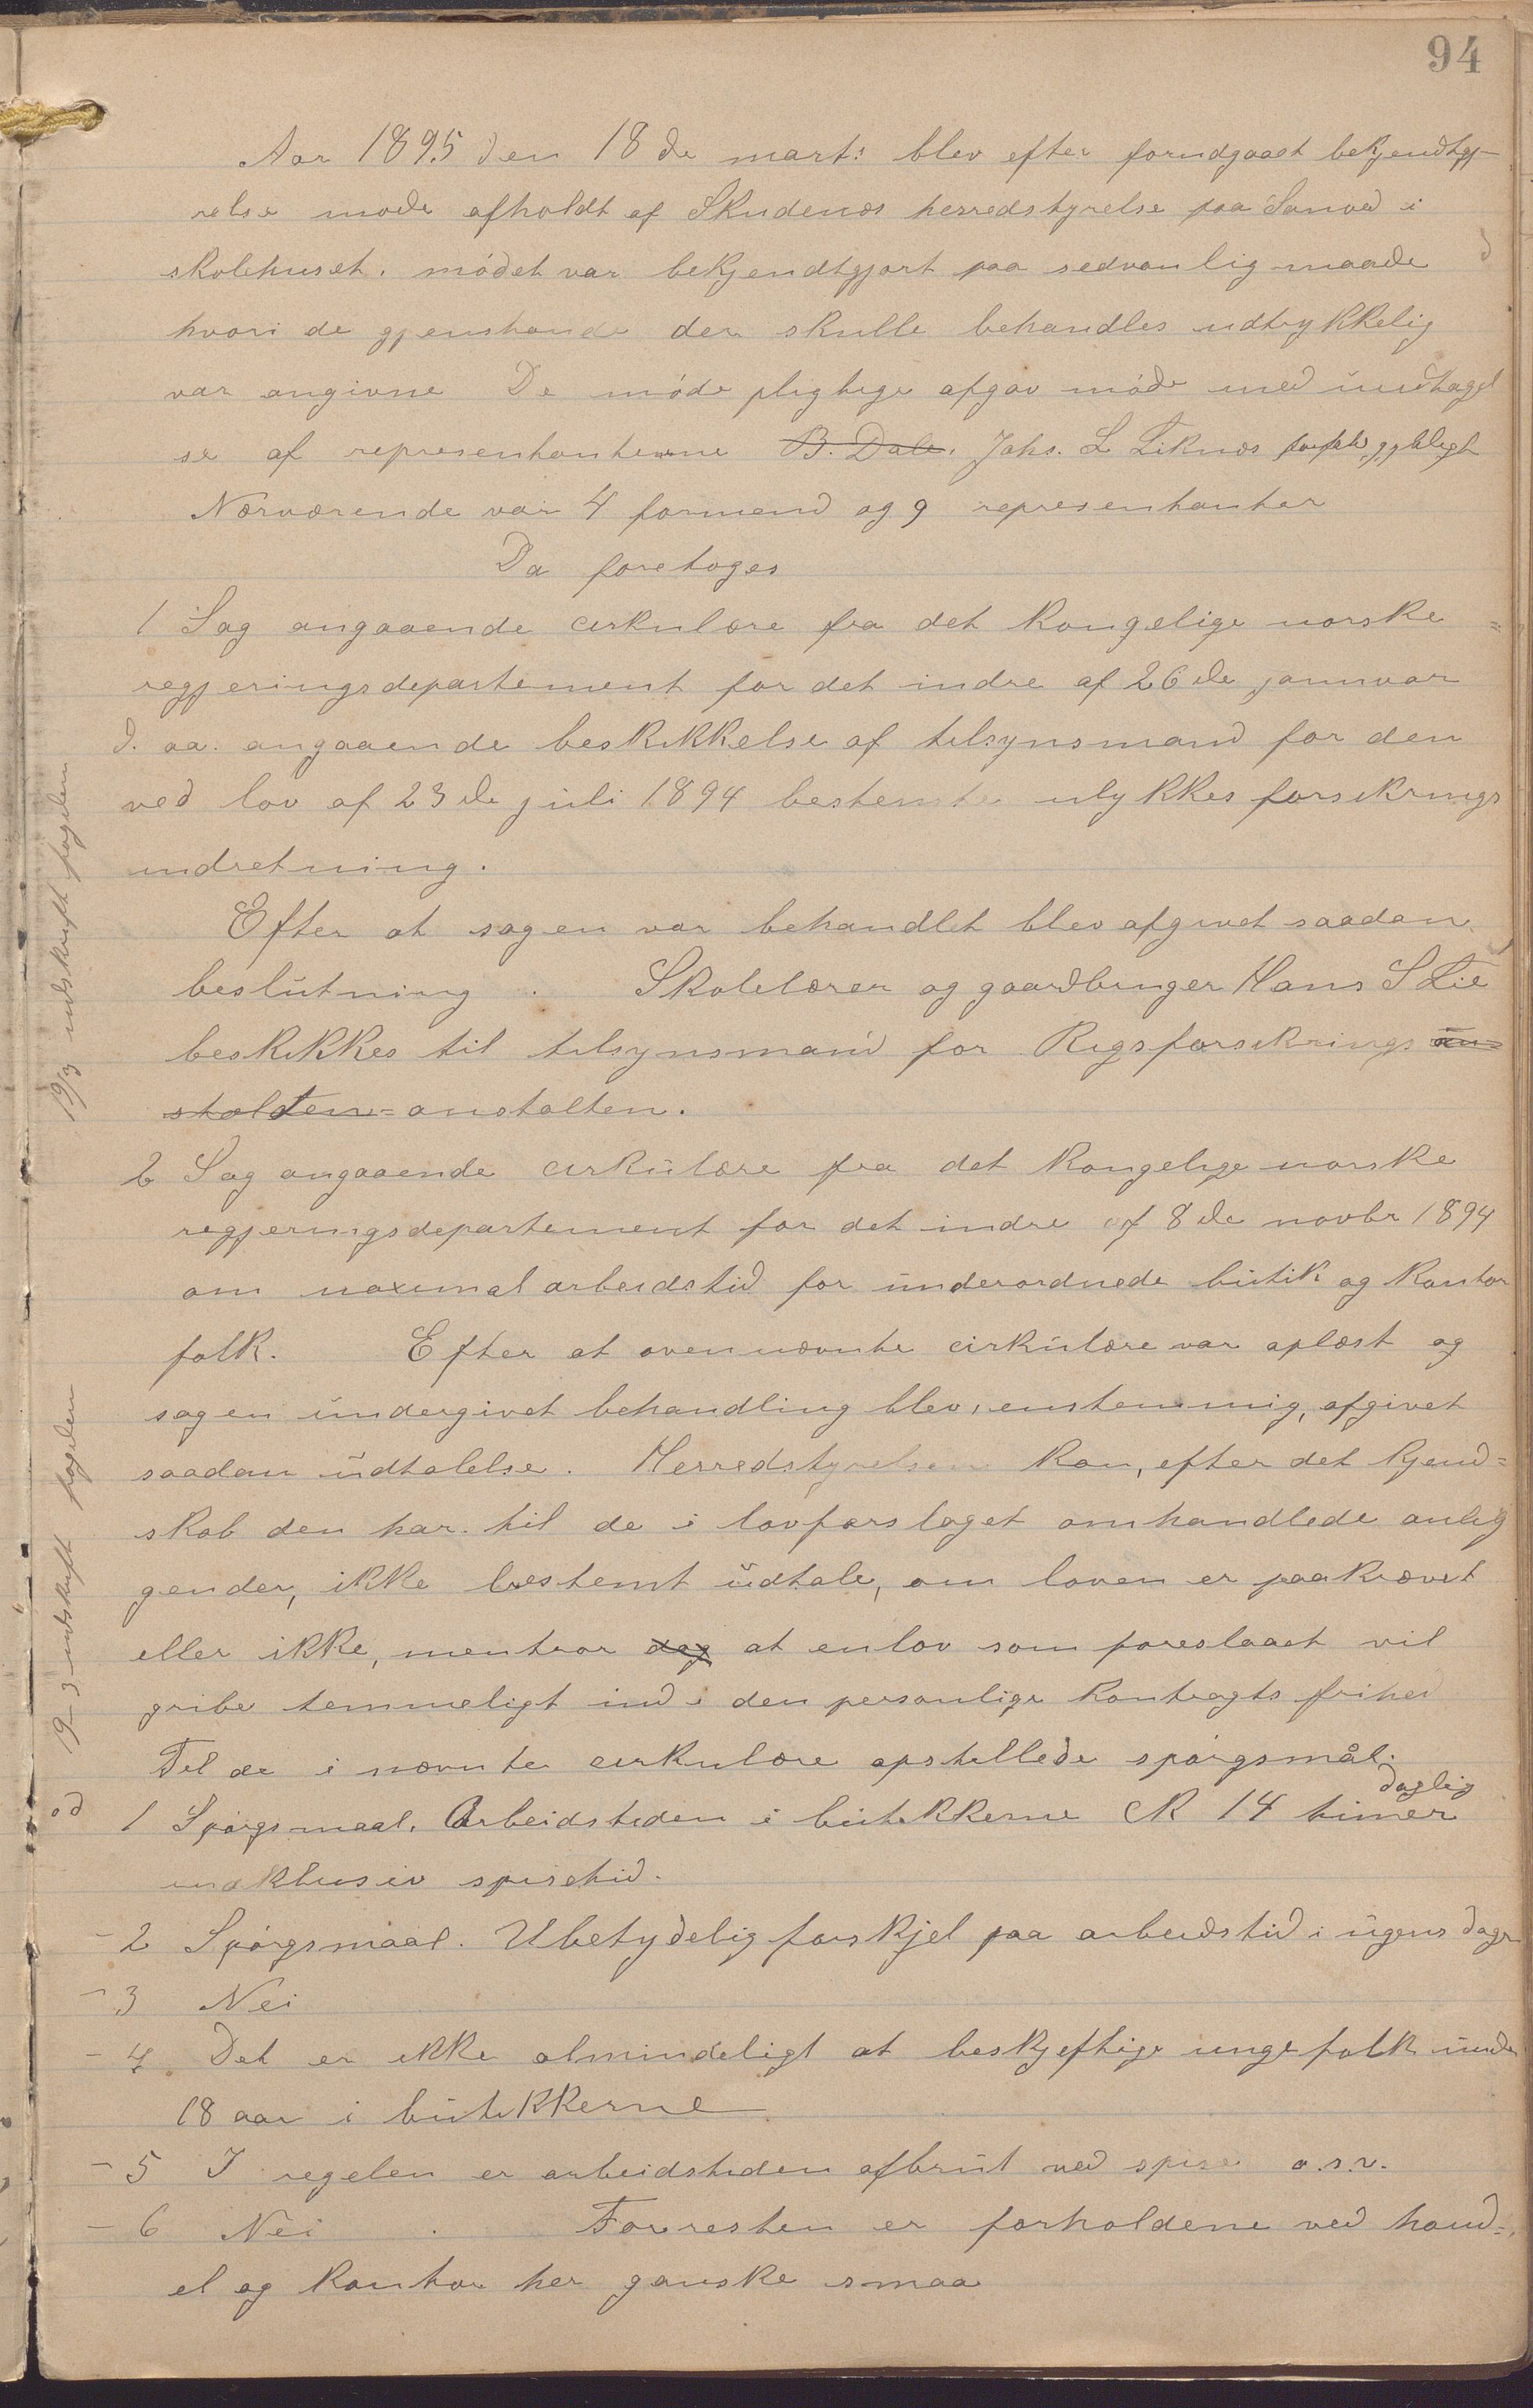 94
Aar 1895 den 18de marts blev efter forudgaaet bekjendtgj-
relse møde afholdt af Skudenæs herredstyrelse paa Sanved i
skolehuset. mødet var bekjendtgjort paa sedvanlig maade
hvori de gjenstande der skulle behandles udtrykkelig
var angivne De møde pligtige afgav møde med undtagel
se af representanterne B. Dale. Johs. L Liknæs
Nærværende var 4 formænd og 9 representanter
Da foretoges
1 Sag angaaende cirkulære fra det kongelige norske
regjeringsdepartement for det indre af 26de januar
d. aa. angaaende beskikkelse af tilsynsmand for den
ved lov af 23de juli 1894 bestemte ulykkesforsikrings
indretning.
Efter at sagen var behandlet blev afgivet saadan
beslutning. Skolelærer og gaardbruger Hans S Lie
beskikkes til tilsynsmand for Rigsforsikrings an
stalten anstalten.
2 Sag angaaende cirkulære fra det kongelige norske
regjeringsdepartement for det indre af 8de novbr 1894
om maximal arbeidstid for underordnede butik og kontor
folk. Efter at ovennævnte cirkulære var oplæst og
sagen undergivet behandling blev, enstemmig, afgivet
saadan udtalelse. Herredstyrelsen kan, efter det kjend=
skab den har til de i lovforslaget omhandlede anlig
gender, ikke bestemt udtale, om loven er paakrævet
eller ikke, men tror dog at en lov som foreslaaet vil
gribe temmeligt ind i den personlige kontragts frihed
Til de i nævnte cirkulære opstillede spørgsmål.
ad 1 Spørgsmaal. Arbeidstiden i butikkerne ck 14 timer daglig
inklusiv spisetid.
- 2 Spørgsmaal. Ubetydelig forskjel paa arbeidstid i ugens dage
- 3 Nei
- 4 Det er ikke almindeligt at beskjeftige unge folk under
18 aar i butikkerne
- 5 I regelen er arbeidstiden afbrut ved spise o.s.v.
- 6 Nei. Forresten er forholdene ved hand=
el og kontor her ganske smaa
19/3 udskrift fogden
19-3 udskrift fogden